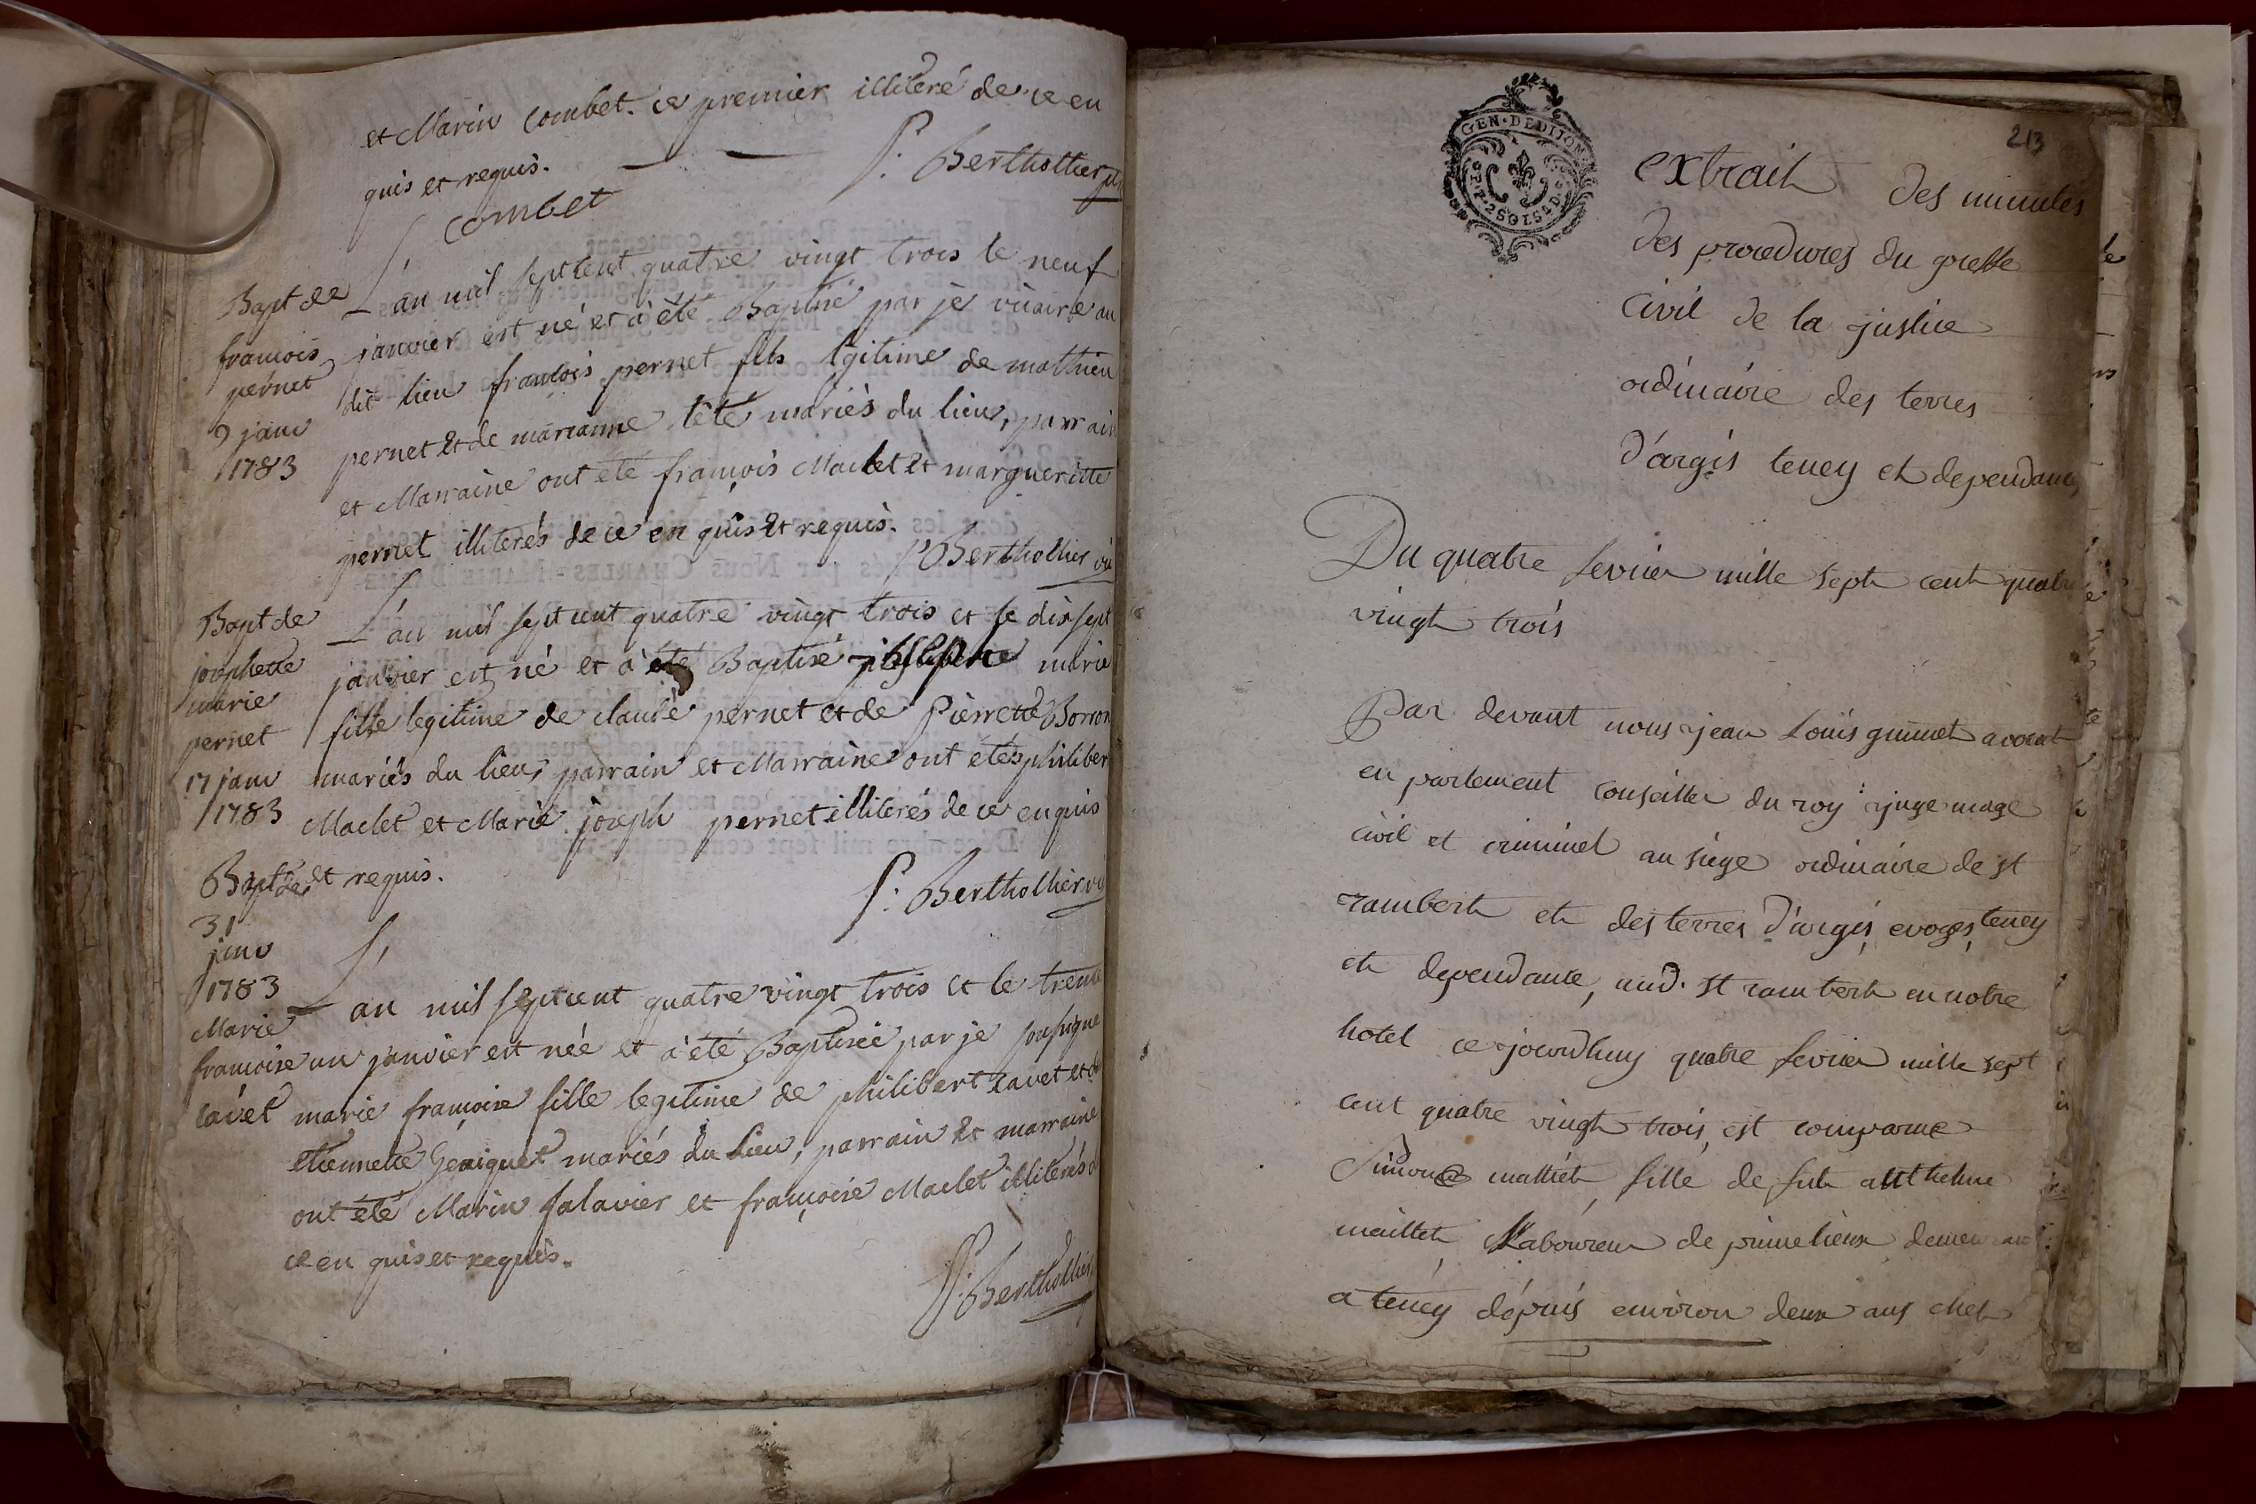 et Marin Combet. ce premier illiteré de ce en
quis et requis. P. Berthollier
Combet
Bapt de
francois
pernet
9 janv
1783
L'an mil sept cent quatre vingt trois le neuf
janvier est né et à été Baptisé par je vicaire au
dit lieu francois pernet fils légitime de mathieu
pernet et de marianne têté mariés du lieu, parrain
et Marraine ont été françois Maclet et margueritte
pernet illiterés de ce en quis et requis.
P. Berthollier vic
Bapt de
josephette
marie
pernet
17 janv
1783
L'an mil sept cent quatre vingt trois et le dix sept
janvier est né et à été Baptisé marie
fille legitime de claude pernet et de Pierrette Borron
mariés du lieu, parrain et Marraine ont étés philiber
Maclet et Marie joseph pernet illiterés de ce enquis
et requis.
P. Berthollier vic
Bapt de
31
janv
1783
Marie
francoise
cavet
L'an mil sept cent quatre vingt trois et le trente
un janvier est née et a été Baptisée par je sousigne
marie françoise fille legitime de philibert cavet et de
etiennette mariés du lieu, parrain et marraine
ont été Marin falavier et françoise Maclet illiterés de
ce en quis et requis.
P. Berthollier
GEN. DE DIJON
2 SOLS 4 D
213
extrait des minutes
des procedures du greffe
Civil de la justice
ordinaire des terres
d'argis teney et dependances
Du quatre fevrier mille sept cent quatre
vingt trois
Par devant nous jean Louis guinet avocat
en parlement conseiller du roy juge mage
civil et criminel au siége ordinaire de st
rambert et des terres d'argis, evoges, teney
et dependance, aud. st rambert en notre
hotel ce jourdhuy quatre fevrier mille sept
cent quatre vingt trois, est comparue
Simone fille de fut anthelme
maillet, Laboureur de demeurant
a teney dépuis environ deux ans chet